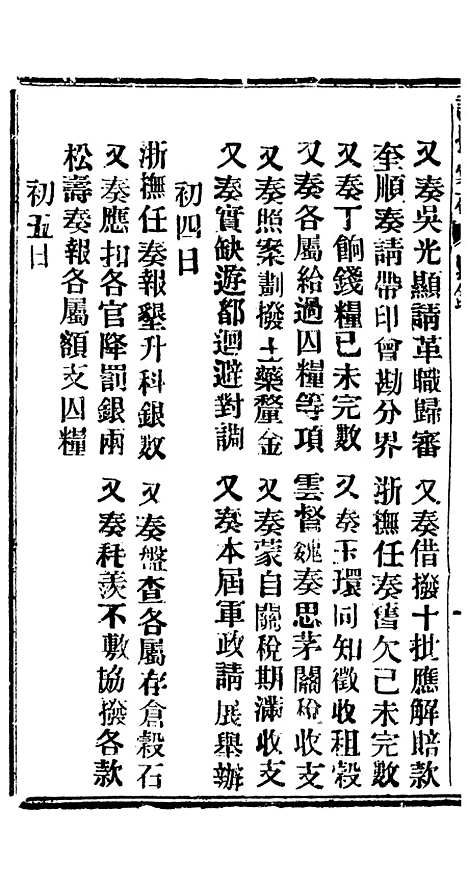 又奏吳光顯請革職歸審　又奏借撥十批應解賠款
奎順奏請帶印會勘分界　浙撫任奏舊欠已未完數
又奏丁餉錢糧已未完數　又奏玉環同知徵收租穀
又奏各屬給過囚糧等項　雲督魏奏思茅關稅收支
又奏照案劃撥土藥釐金　又奏蒙自關稅期滿收支
又奏實缺遊都迴避對調　又奏本屆軍政請展舉辦
初四日
浙撫任奏報墾升科銀數　又奏盤查各屬存倉穀石
又奏應扣各官降罰銀兩　又奏秏羨不敷協撥各款
松壽奏報各屬額支囚糧
初五日